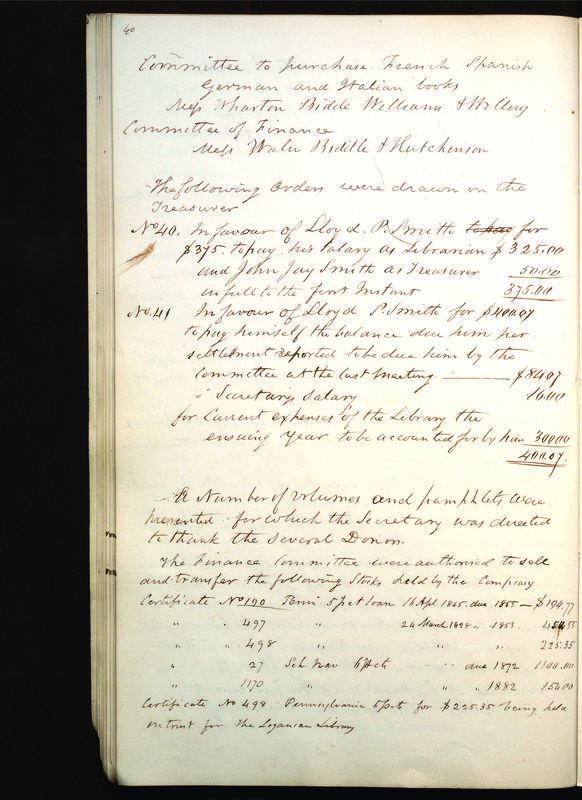 60
Committee to purchase French Spanish
German and Italian books
Mess Wharton Biddle Williams & Willing
Committee of Finance
Mess Waln Biddle & Hutchinson
The following Orders were drawn on the
Treasurer
No 40. In favour of Lloyd. P. Smith for
$375. to pay his salary as Librarian $325.00
and John Jay Smith as Treasurer 50.00
in full to the first Instant 375.00
No. 41 In favour of Lloyd P. Smith for $400.07
to pay himself the balance due him per
settlement reported to be due him by the
Committee at the last Meeting — $84.07
" Secretary's Salary 16.00
for Current expenses of the Library the
ensuing Year to be accounted for by him 300.00
400.07.
A Number of volumes and pamphlets were
presented for which the Secretary was directed
to thank the several Donors.
The Finance Committee were authorised to sell
and transfer the following Stocks held by the Company
Certificate No 190 Penn 5 pct loan 16 Apl. 1845. due 1855 — $194.77
" " 497 " 24 March 1828 " 1853
" " 498 " " " 225.35
" 27 Sch Nav 6 pcts " due 1872 1100.00
" 1170 " " " 1882 156.00
Certificate No 498 Pennsylvania 5 pcts for $225.35 being held
in trust for the Loganian Library